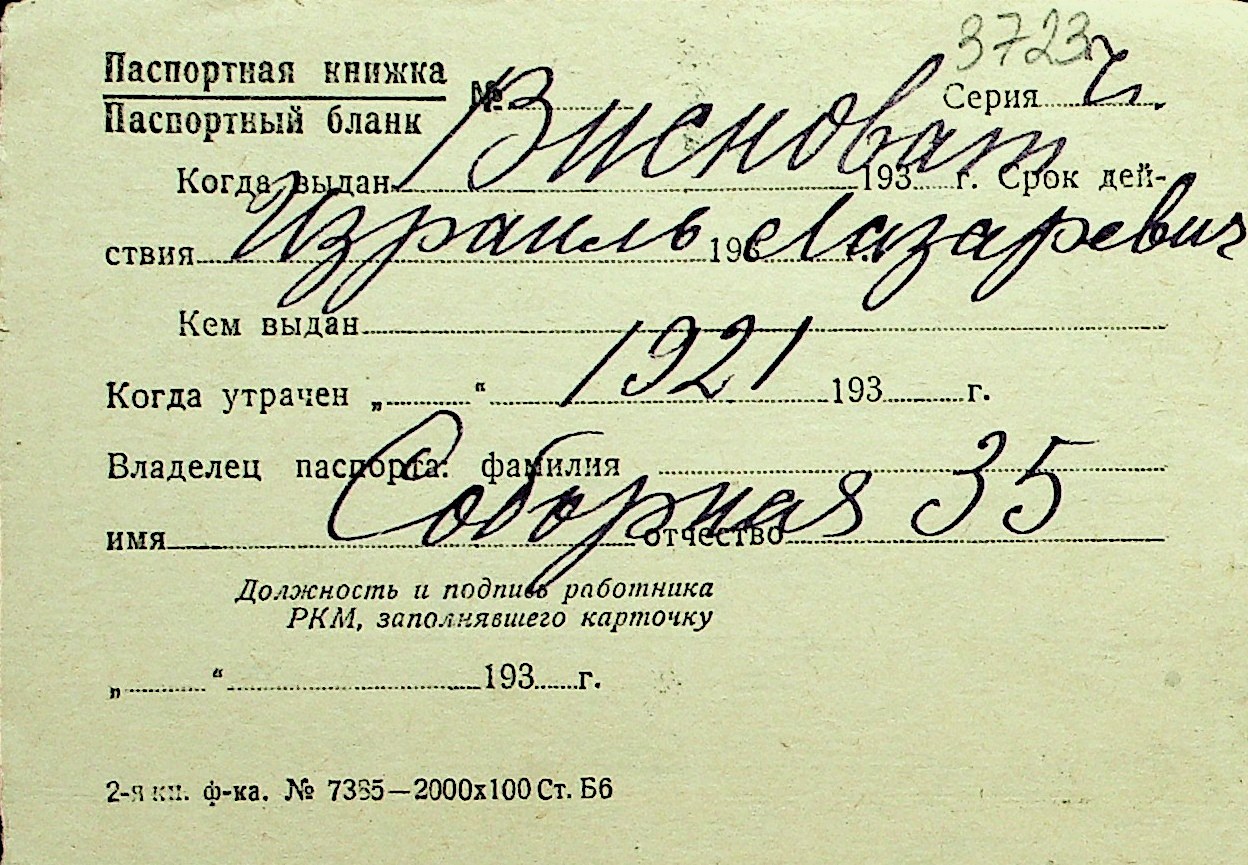 3723
Паспортная книжка
Паспортный бланк № Серия
Висноват
Когда выдан 193 г. Срок дей-
ствия 193 г.
Израиль Лазаревич
Кем выдан
1921
Когда утрачен „ “ 193 г.
Владелец паспорта: фамилия
Соборная 35
имя отчество
Должность и подпись работника
РКМ, заполнявшего карточку
„ “ 193 г.
2-я кн. ф-ка. № 7385—2000х100 Ст. Б6